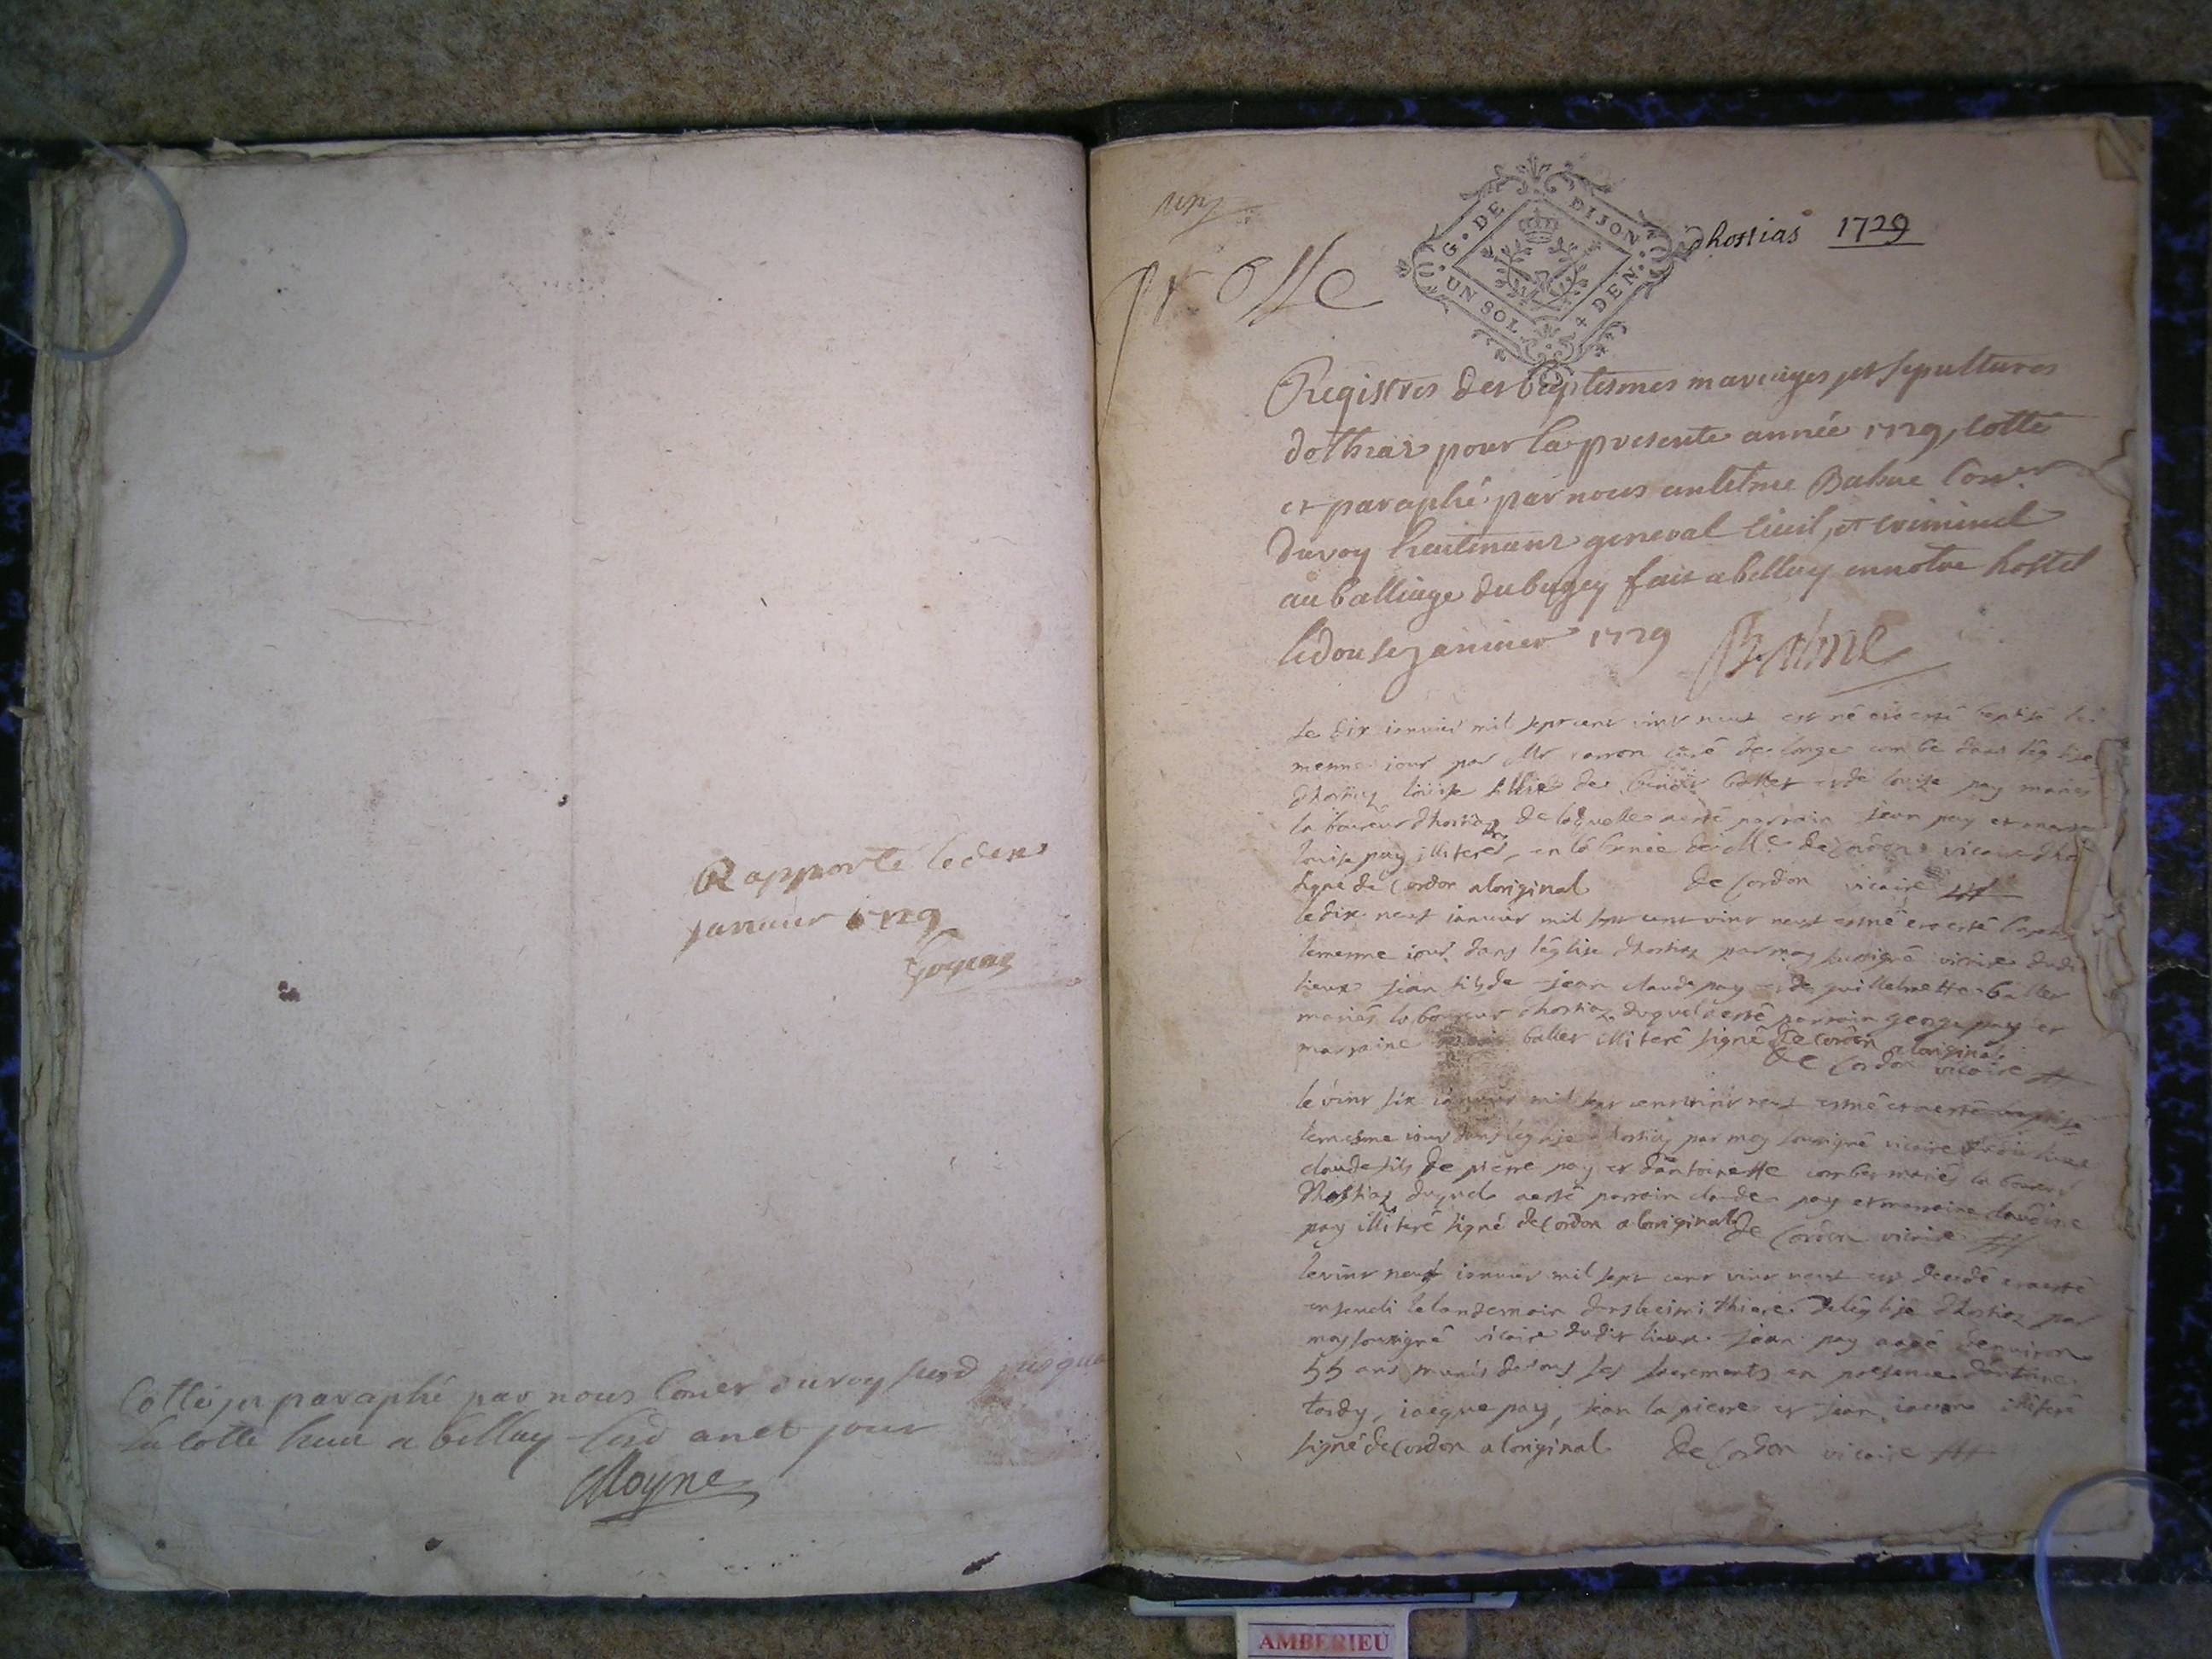 Rapporté le dix
janvier 1729
Cotté et paraphé par nous Coner du roy susd jusqua
la cotte huit a bellay lesd an et jour
Moyne
un
grosse
G. DE DIJON
UN SOL 4 DEN.
dhostias 1729
Registres des baptesmes mariages et sepultures
dothiaz pour la presente année 1729, cotté
et paraphé par nous antelme Balme Coner
du roy lieutenant general civil, et criminel
au balliage du bugey fait a bellay en notre hostel
le douse janvier 1729 Balme
le dix ianvier mil sept cent vint neuf est né et a esté baptisé le
mesme iour par Mr carron curé de longe combe dans léglise
dhostiaz louise fille de benoit ballet et de louise pay mariés
laboureur dhostiaz de laquelle a esté parrain jean pay et marr
louise pay illiteré, en labsence de Mr decordon vicaire dho
signé decordon a loriginal de Cordon vicaire
le dix neuf ianvier mil sept cent vint neuf est né et a esté bapti
le mesme iour dans léglise dhostiaz par moy soussigné vicaire dudi
lieux jean fils de jean claude pay et de guillelmette ballet
mariés laboureur dhostiaz duquel a esté parrain george pay et
marraine ballet illiteré signé de cordon a loriginal
de Cordon vicaire
le vint six ianvier mil sept cent vint neuf est né et a esté baptisé
le mesme iour dans léglise dhostiaz par moy soussigné vicaire dudit lieux
claude fils de pierre pay et dantoinette combet mariés laboureur
dhostiaz duquel a esté parrain claude pay et marraine claudine
pay illiteré signé decordon a loriginal de Cordon vicaire
le vint neuf ianvier mil sept cent vint neuf est decedé et a esté
enseveli le landemain dans le cimithiere de léglise dhostiaz par
moy soussigné vicaire dudit lieux jean pay aagé denviron
55 ans munis de tous ses sacrements en presence dantoine
tardy, iacque pay, jean la pierre et jean illiteré
signé decordon a loriginal de Cordon vicaire
AMBERIEU